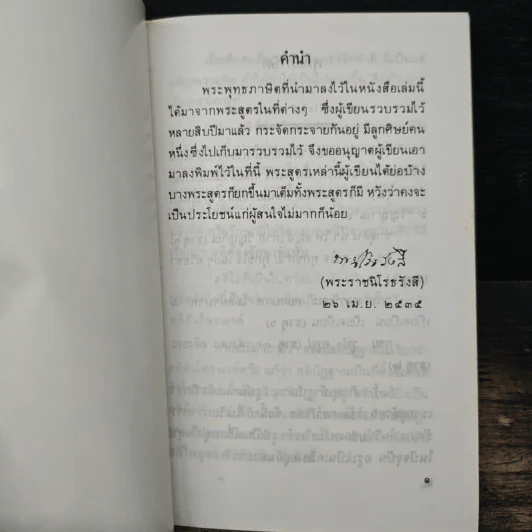 คำนำ
พระพุทธภาษิตที่นำมาลงไว้ในหนังสือเล่มนี้
ได้มาจากพระสูตรในที่ต่างๆ ซึ่งผู้เขียนรวบรวมไว้
หลายสิบปีมาแล้ว กระจัดกระจายกันอยู่ มีลูกศิษย์คน
หนึ่งซึ่งไปเก็บมารวบรวมไว้ จึงขออนุญาตผู้เขียนเอา
มาลงพิมพ์ไว้ในที่นี้ พระสูตรเหล่านี้ผู้เขียนได้ย่อบ้าง
บางพระสูตรก็ยกขึ้นมาเต็มทั้งพระสูตรก็มี หวังว่าคงจะ
เป็นประโยชน์แก่ผู้สนใจไม่มากก็น้อย
(พระราชนิโรธรังสี)
๒๖ เม.ย. ๒๕๓๕
๑